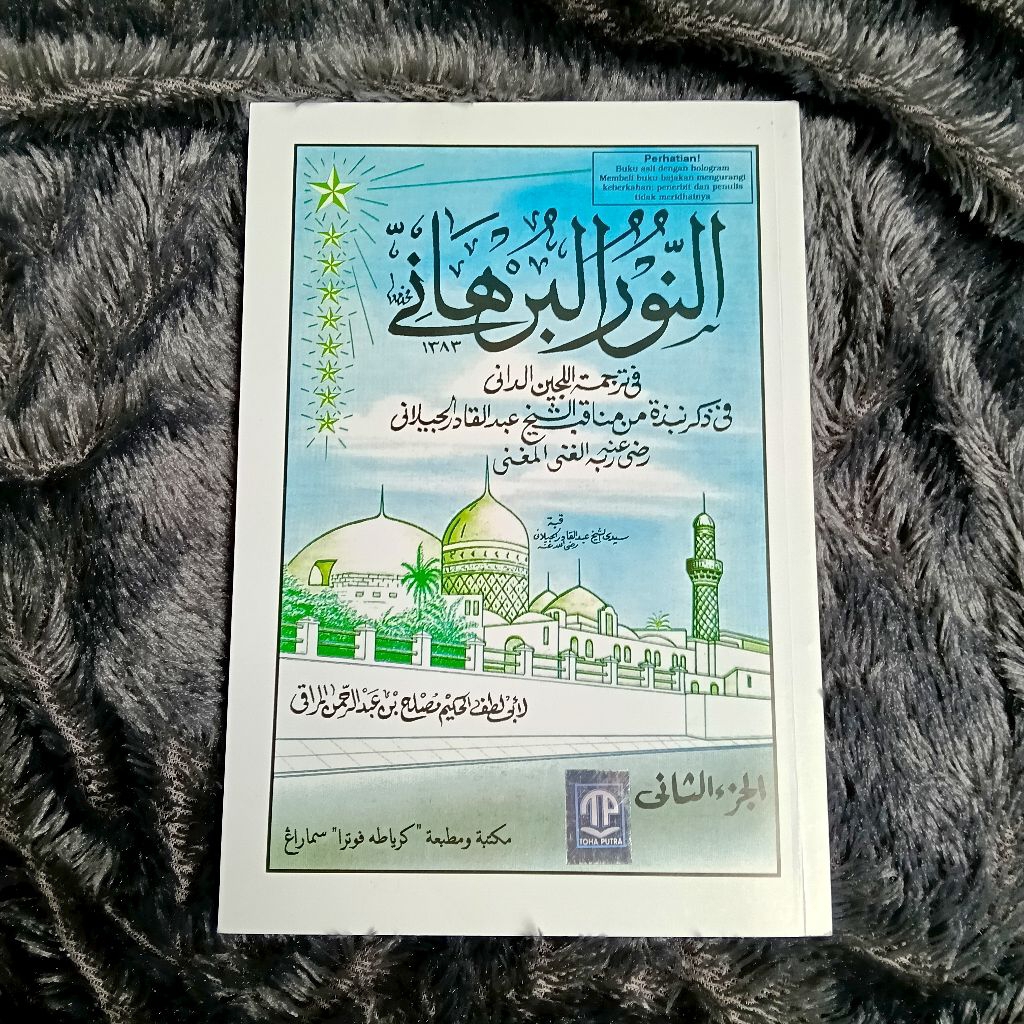 Perhatian!
Buku asli dengan hologram
Membeli buku bajakan mengurangi
keberkahan; penerbit dan penulis
tidak meridhainya
النُّوْرُ الْبُرْهَانِيّ
١٣٨٣
فى ترجمة اللجين الدانى
فى ذكر نبذة من مناقب الشيخ عبد القادر الجيلانى
رضى عنه ربه الغنى المغنى
قبة
سيدى الشيخ عبد القادر الجيلانى
رضى الله عنه
لأبى لطف الحكيم مصلح بن عبد الرحمن المراقى
الجزء الثانى
TOHA PUTRA
مكتبة ومطبعة "كرياطه فوترا" سماراڠ